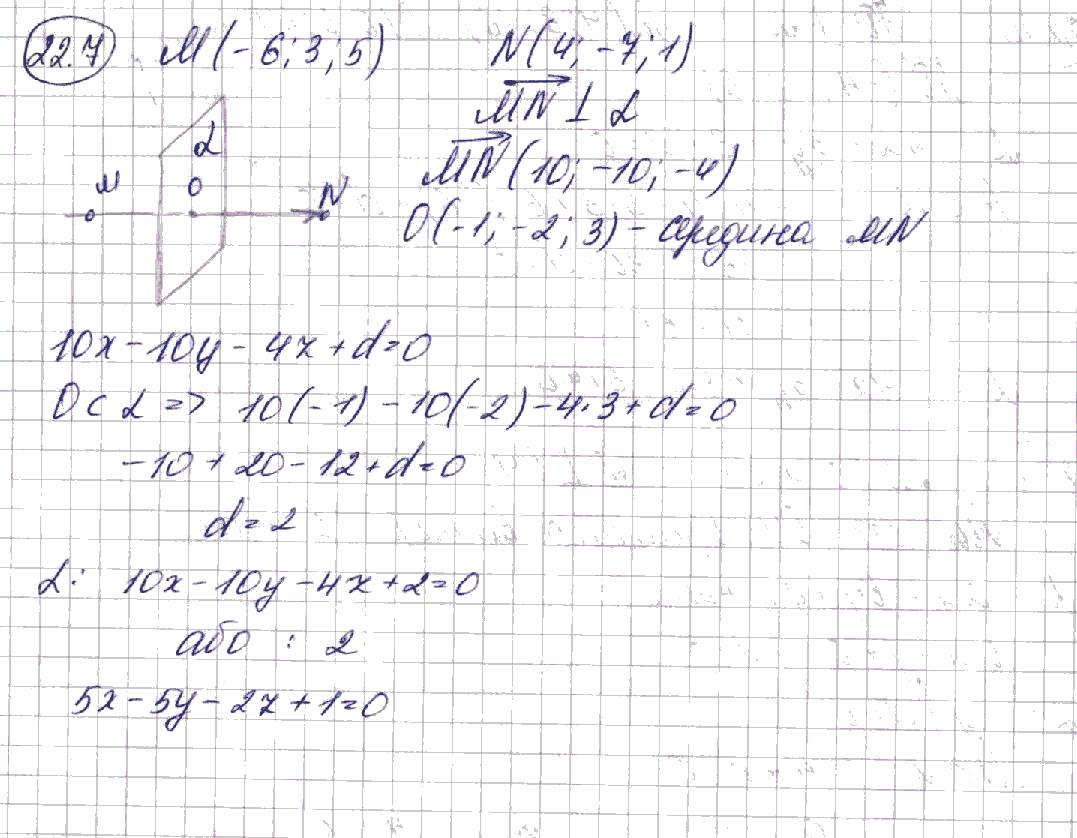 22.7 M(-6; 3; 5) N(4; -7; 1)
MN ⊥ α
MN (10; -10; -4)
O(-1; -2; 3) - середина MN
α
M O N
10x - 10y - 4z + d = 0
O ⊂ α => 10(-1) - 10(-2) - 4·3 + d = 0
-10 + 20 - 12 + d = 0
d = 2
α: 10x - 10y - 4z + 2 = 0
або : 2
5x - 5y - 2z + 1 = 0